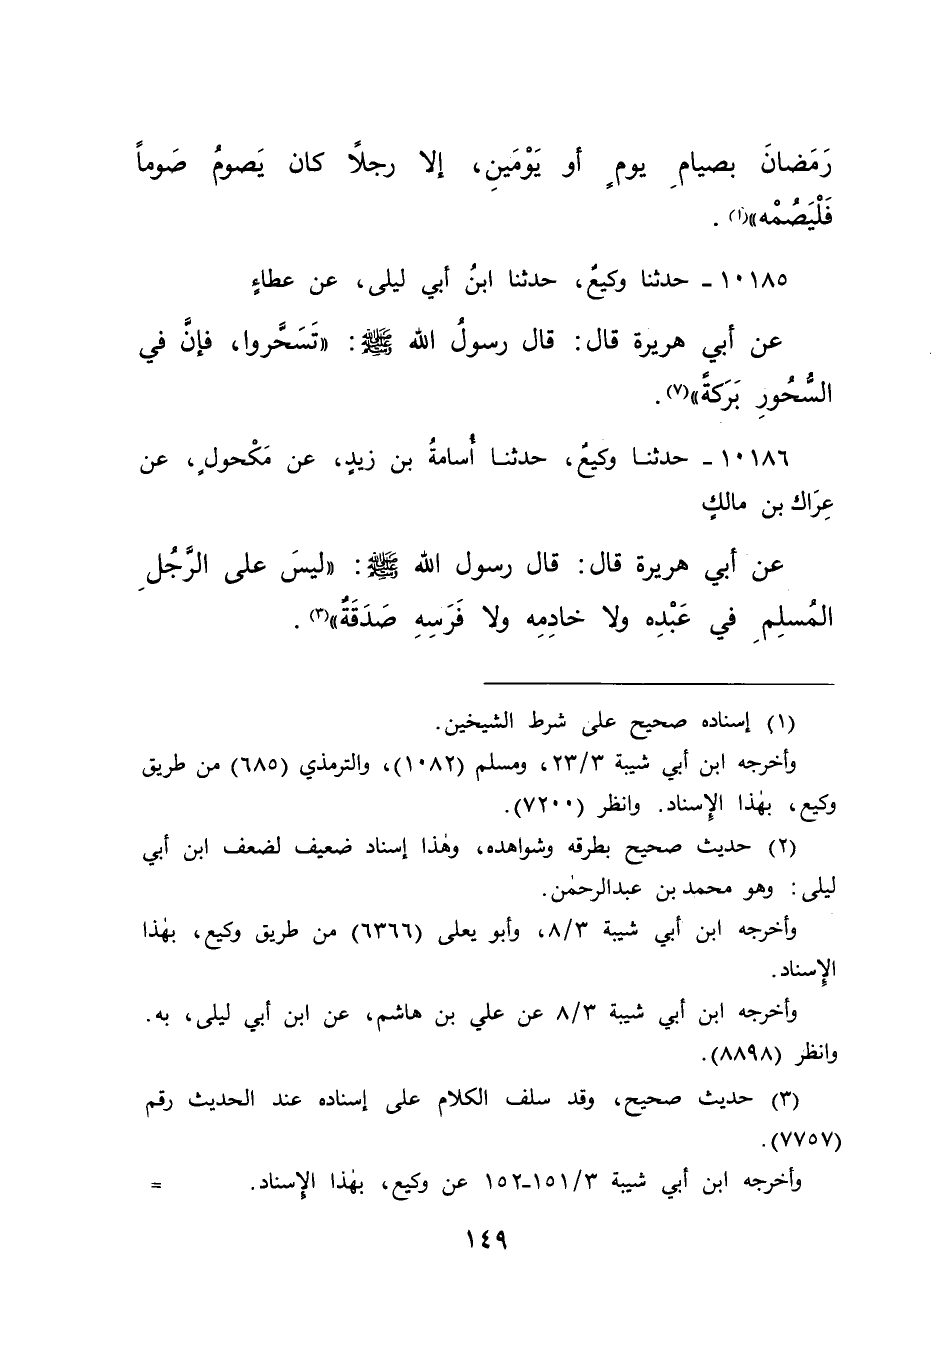 رَمَضانَ بصيامِ يومٍ أو يَوْمَينِ، إلا رجلًا كان يَصومُ صَوماً
فَلْيَصُمْه»(١) .
١٠١٨٥ ـ حدثنا وكيعٌ، حدثنا ابنُ أبي ليلى، عن عطاءٍ
عن أبي هريرة قال: قال رسولُ الله ﷺ: «تَسَحَّروا، فإنَّ في
السُّحُورِ بَرَكةً»(٧).
١٠١٨٦ ـ حدثنا وكيعٌ، حدثنا أُسامةُ بن زيدٍ، عن مَكْحولٍ، عن
عِرَاك بن مالكٍ
عن أبي هريرة قال: قال رسول الله ﷺ: «ليسَ على الرَّجُلِ
المُسلِمِ في عَبْدِه ولا خادِمِه ولا فَرَسِهِ صَدَقَةٌ»(٣) .
(١) إسناده صحيح على شرط الشيخين.
وأخرجه ابن أبي شيبة ٢٣/٣، ومسلم (١٠٨٢)، والترمذي (٦٨٥) من طريق
وكيع، بهٰذا الإِسناد. وانظر (٧٢٠٠).
(٢) حديث صحيح بطرقه وشواهده، وهٰذا إسناد ضعيف لضعف ابن أبي
ليلى: وهو محمد بن عبدالرحمٰن.
وأخرجه ابن أبي شيبة ٨/٣، وأبو يعلى (٦٣٦٦) من طريق وكيع، بهٰذا
الإِسناد.
وأخرجه ابن أبي شيبة ٨/٣ عن علي بن هاشم، عن ابن أبي ليلى، به.
وانظر (٨٨٩٨).
(٣) حديث صحيح، وقد سلف الكلام على إسناده عند الحديث رقم
(٧٧٥٧).
وأخرجه ابن أبي شيبة ١٥١/٣-١٥٢ عن وكيع، بهٰذا الإِسناد. =
١٤٩